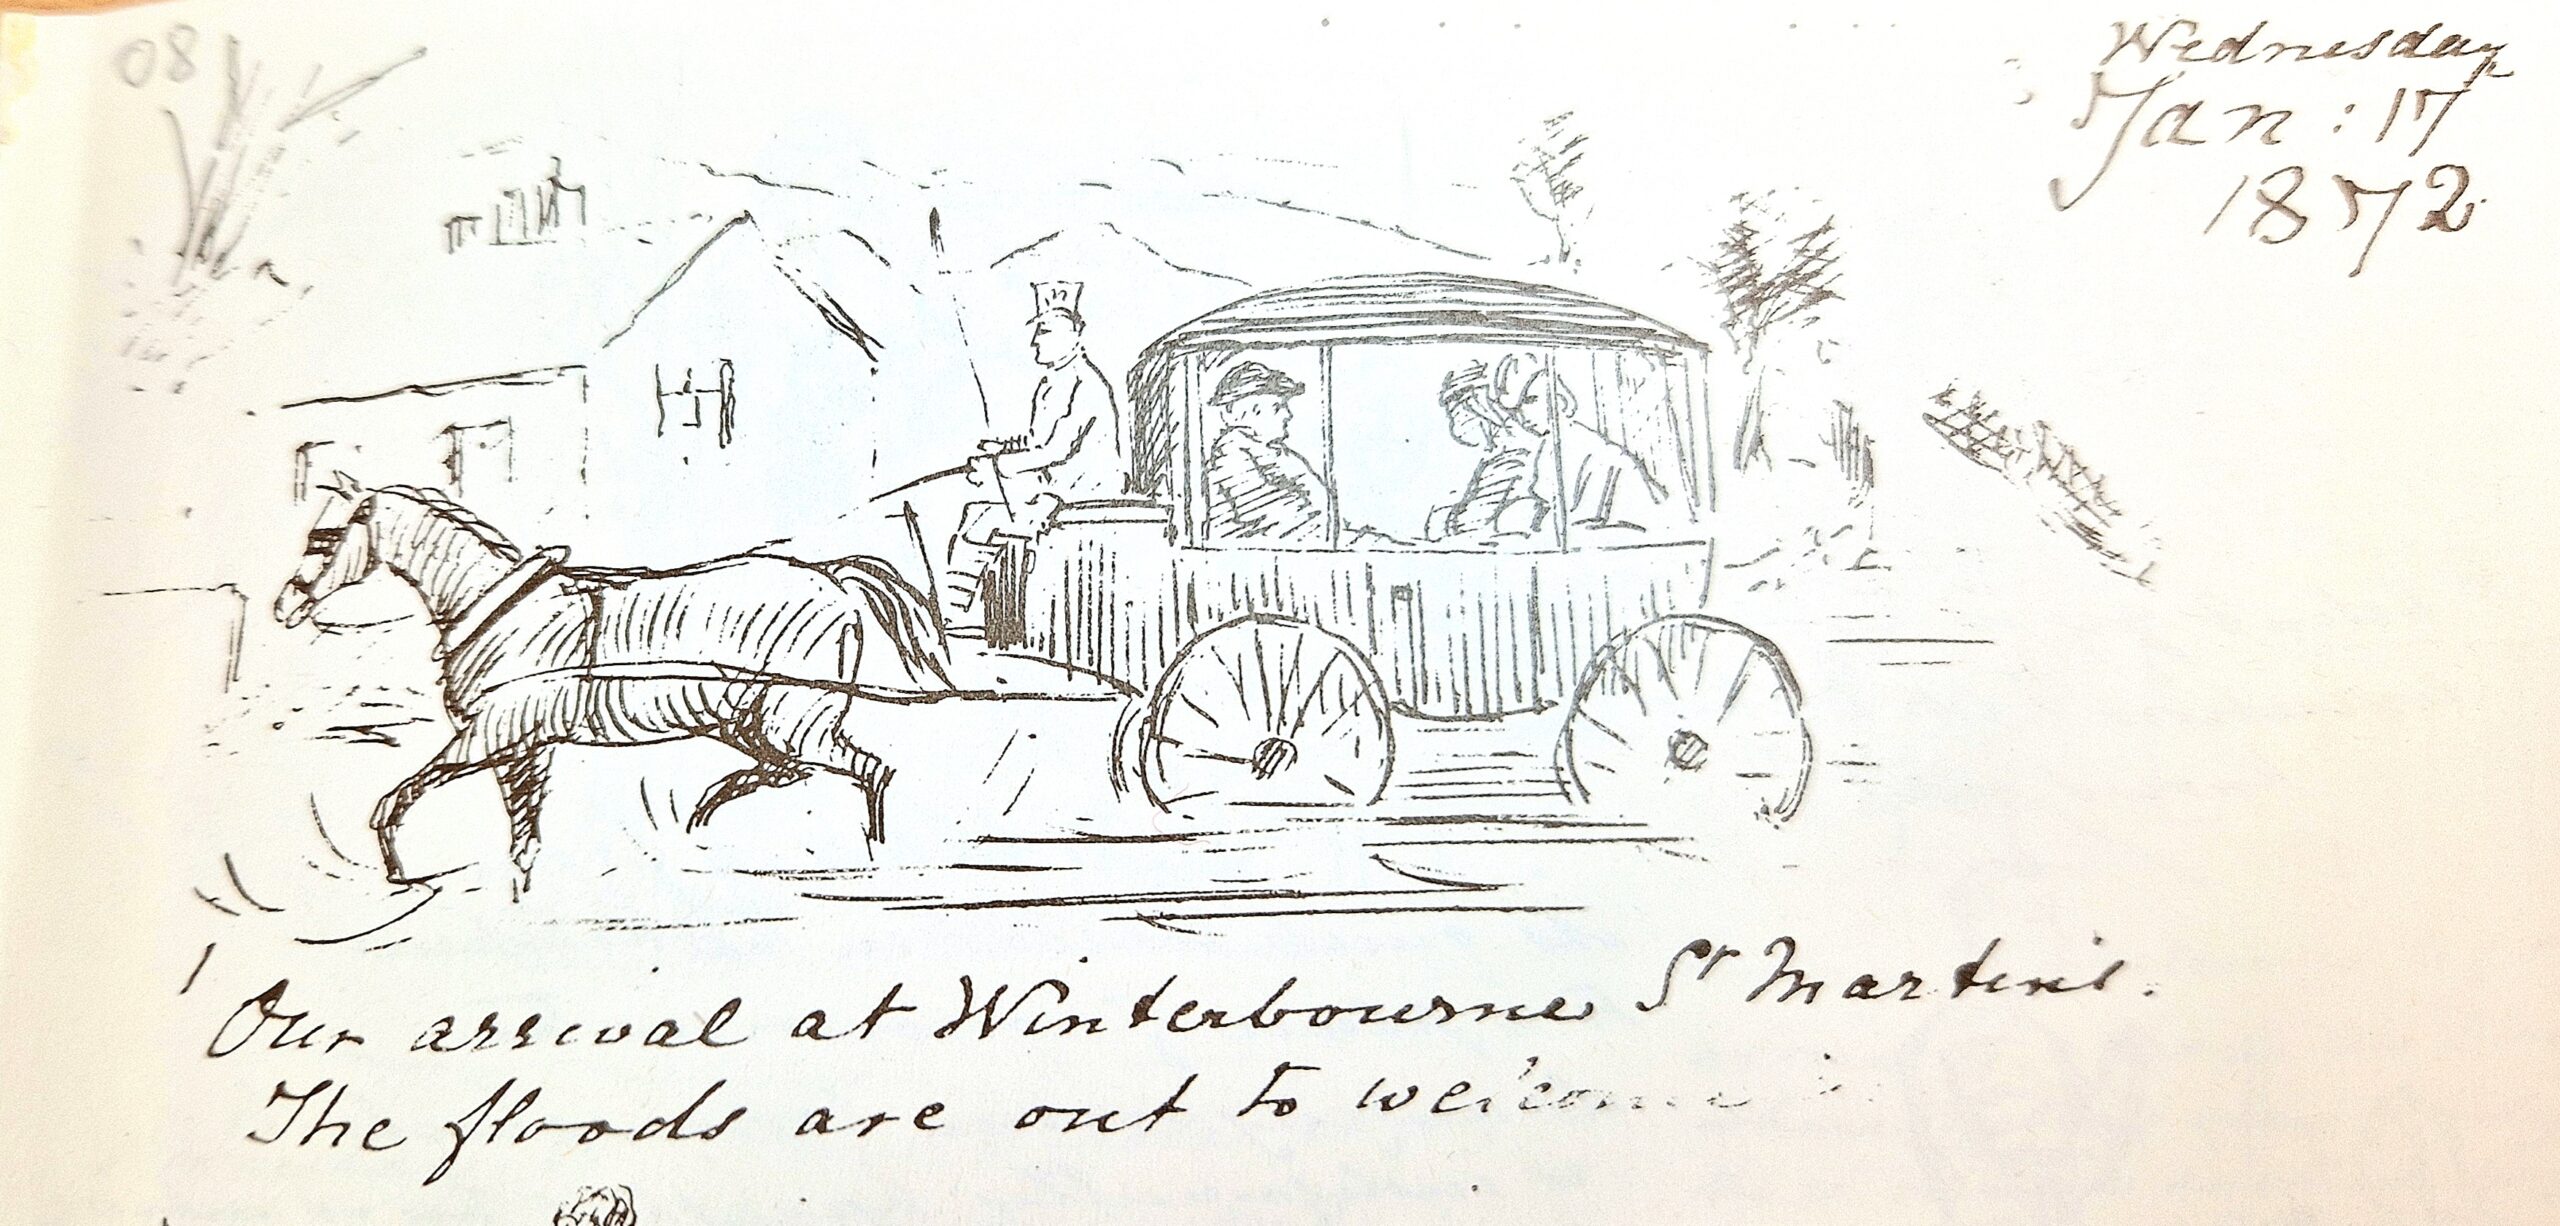 08
Wednesday
Jan: 17
1872
Our arrival at Winterbourne St Martins.
The floods are out to welcome